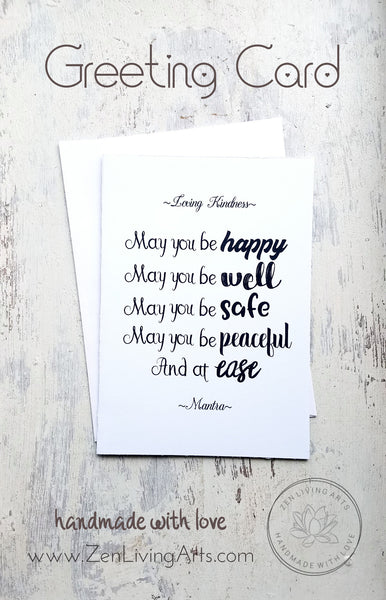 Greeting Card
~Loving Kindness~
May you be happy
May you be well
May you be safe
May you be peaceful
And at ease
~Mantra~
handmade with love
www.ZenLivingArts.com
ZEN LIVING ARTS
HANDMADE WITH LOVE